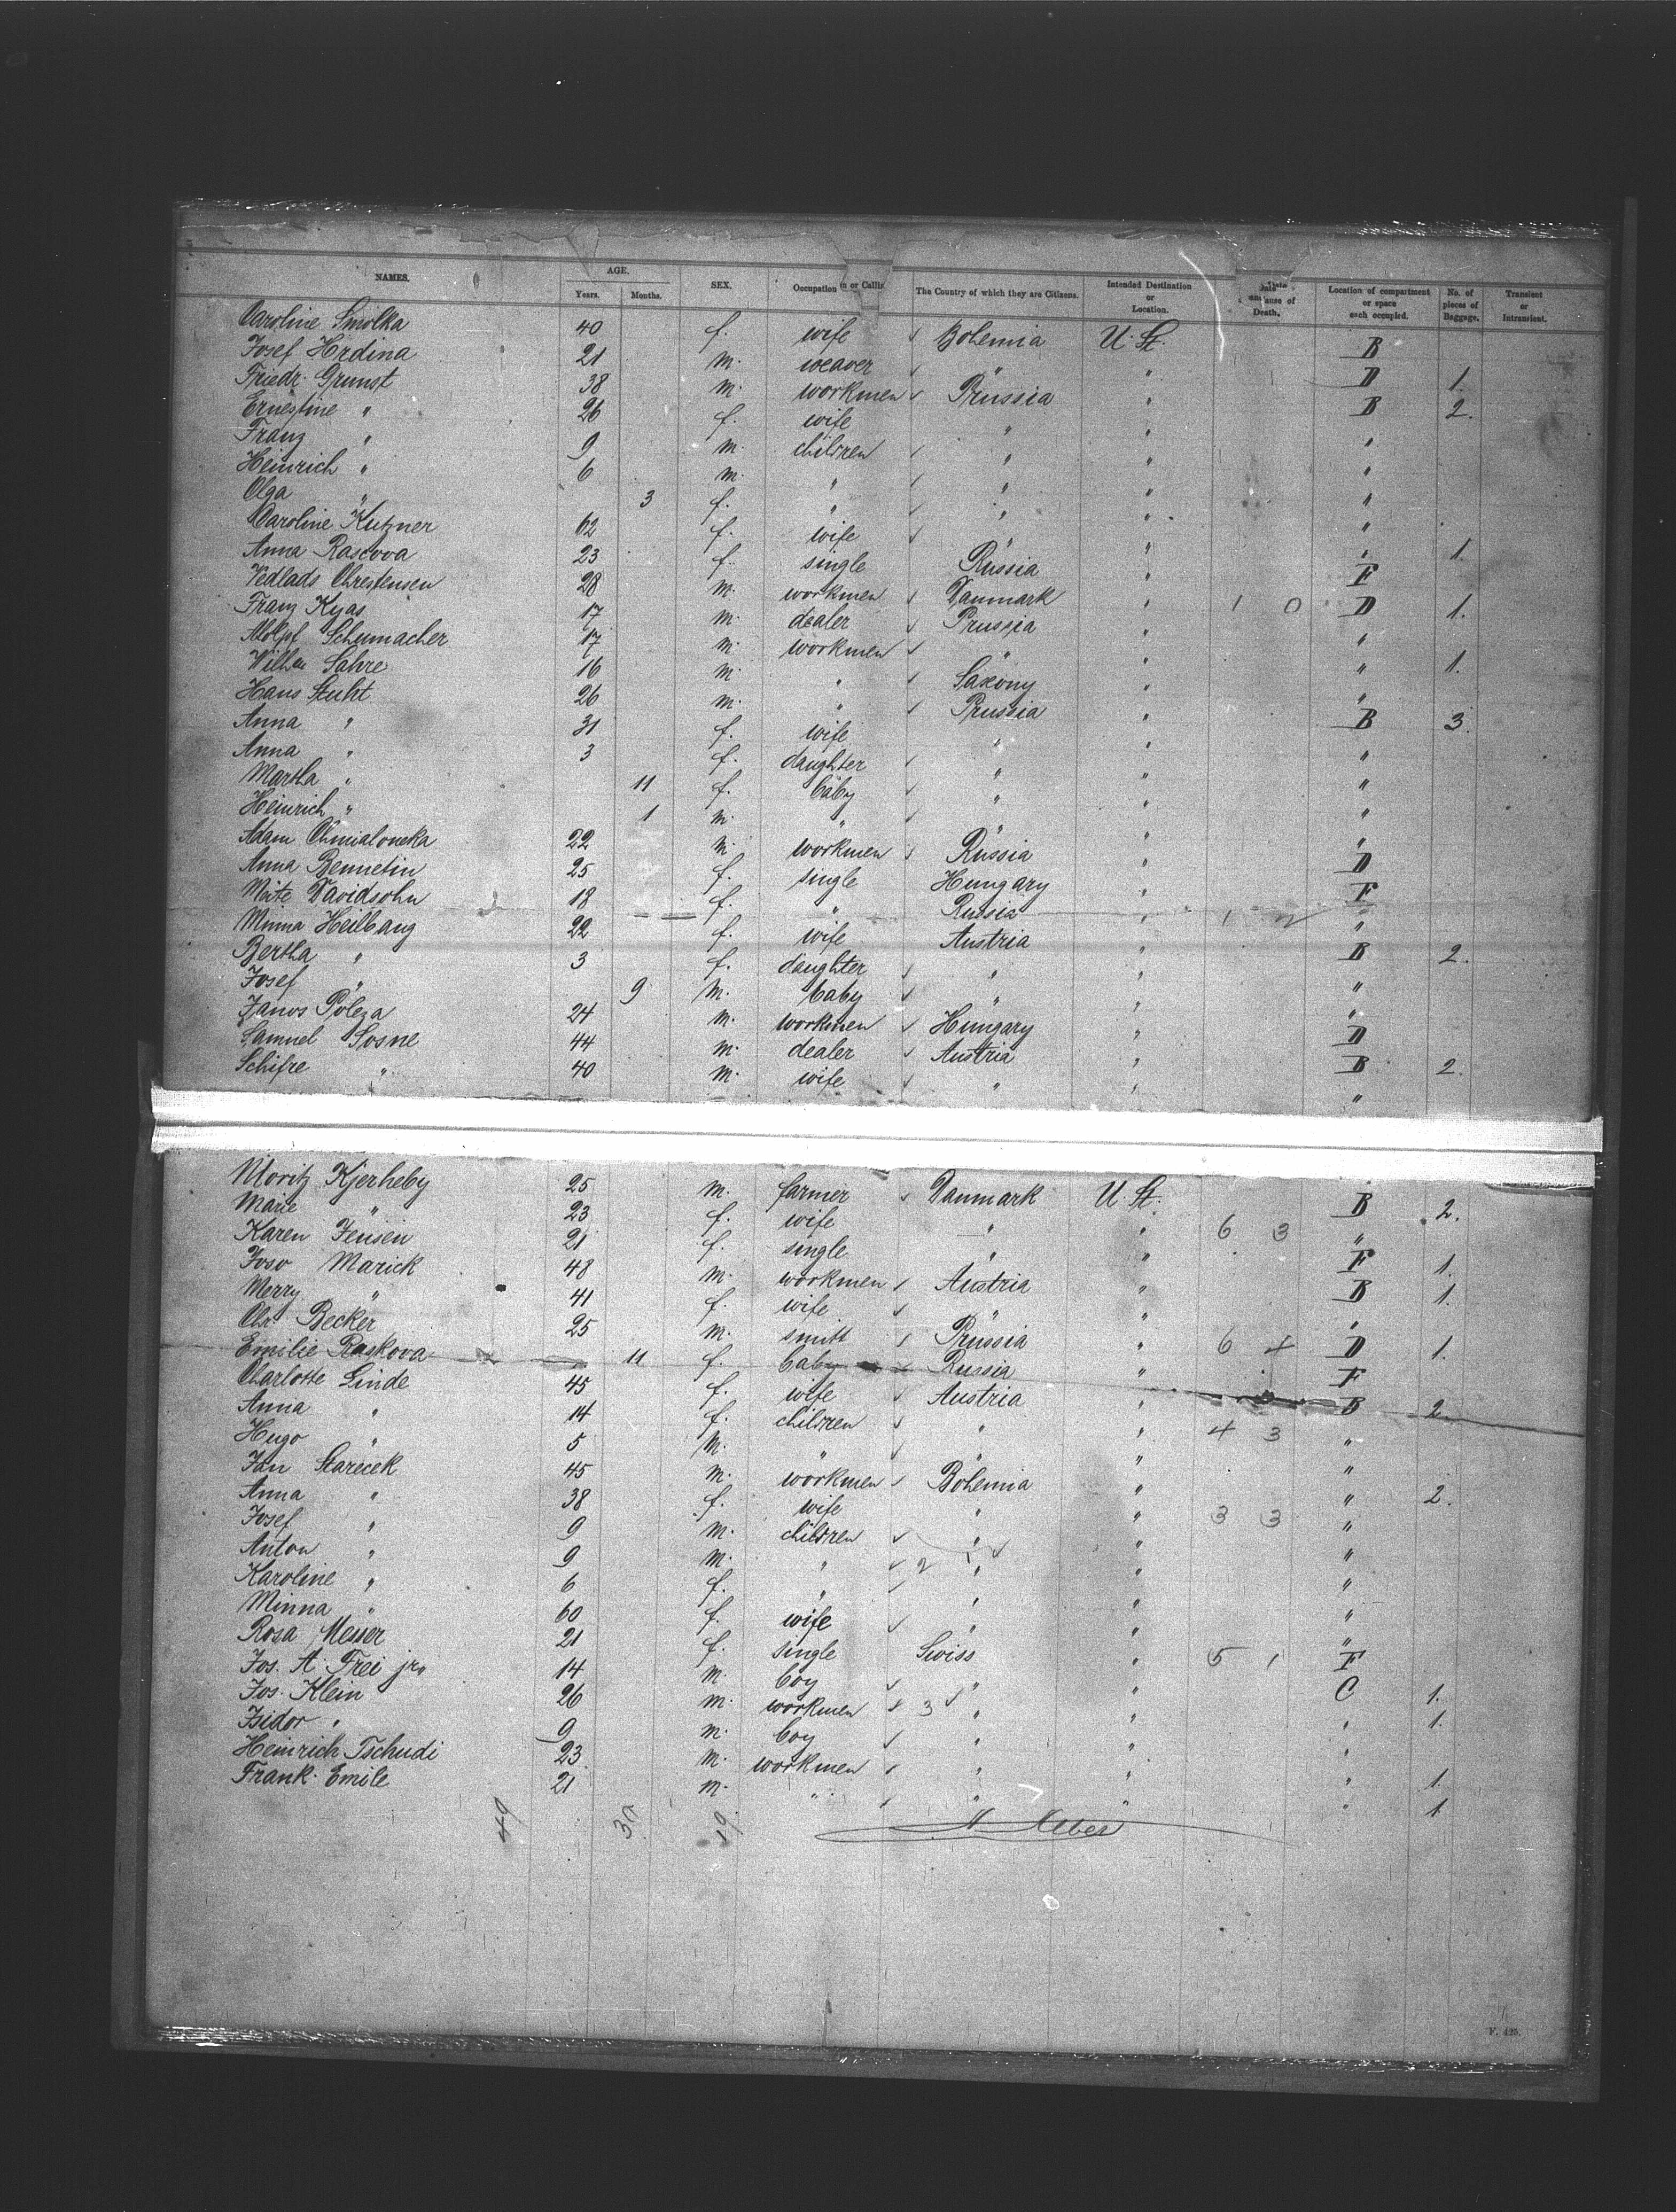 NAMES. AGE. Years. Months. SEX. Occupation or Calling The Country of which they are Citizens. Intended Destination or Location. Date and Cause of Death. Location of compartment or space each occupied. No. of pieces of Baggage. Transient or Intransient.
Caroline Smolka 40 f. wife Bohemia U. St. B
Josef Hrdina 21 m. weaver " " D 1.
Friedr. Grunst 38 m. workmen Prussia " B 2.
Ernestine " 26 f. wife " " "
Franz " 9 m. children " " "
Heinrich " 6 m. " " " "
Olga " 3 f. " " " "
Caroline Kutzner 62 f. wife " " " 1
Anna Rascova 23 f. single Russia " F
Vedlads Chrestensen 28 m. workmen Danmark " 1 0 D 1.
Franz Kyas 17 m. dealer Prussia " "
Adolpf Schumacher 17 m. workmen " " " 1.
Wilh. Sahre 16 m. " Saxony " "
Hans Stuht 26 m. " Prussia " B 3.
Anna " 31 f. wife " " "
Anna " 3 f. daughter " " "
Martha " 11 f. baby " " "
Heinrich " 1 m. " " " "
Adam Chmialoneka 22 m. workmen Russia " D
Anna Bennetin 25 f. single Hungary " F
Davidsohn 18 f. " Russia " 1 2 "
Minna Heilbaug 22 f. wife Austria " B 2.
Bertha " 3 f. daughter " " "
Josef " 9 m. baby " " "
Janos Poleza 24 m. workmen Hungary " D
Samuel Sosne 44 m. dealer Austria " B 2.
Schifre " 40 m. wife " " "
Moritz Kjerheby 25 m. farmer Danmark U. St. B 2.
Marie " 23 f. wife " " 6 3 "
Karen Jensen 21 f. single " " F 1.
Joso Marick 48 m. workmen Austria " B 1.
Merry " 41 f. wife " " "
Chr. Becker 25 m. smitt Prussia " 6 4 D 1.
Emilie Raskova 11 f. baby Russia " F
Charlotte Linde 45 f. wife Austria " B 2
Anna " 14 f. children " " 4 3 "
Hugo " 5 m. " " " "
Jan Starecek 45 m. workmen Bohemia " " 2.
Anna " 38 f. wife " " 3 3 "
Josef " 9 m. children " " "
Anton " 9 m. " 2 " " "
Karoline " 6 f. " " " "
Minna " 60 f. wife " " "
Rosa Messer 21 f. single Swiss " 5 1 F
Jos. A. Frei jr. 14 m. boy " " C 1.
Jos. Klein 26 m. workmen 3 " " " 1.
Isidor " 9 m. boy " " "
Heinrich Tschudi 23 m. workmen " " " 1.
Frank Emile 21 m. " " " " 1
49 30 19
F. 425.